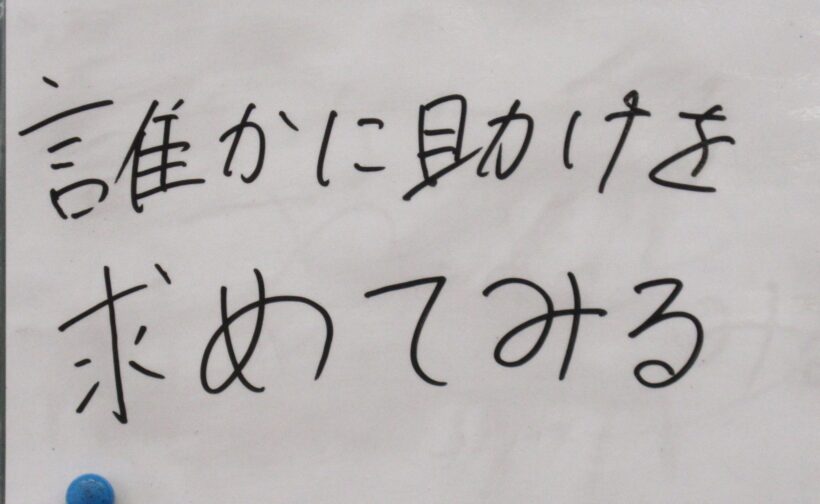 誰かに助けを
求めてみる